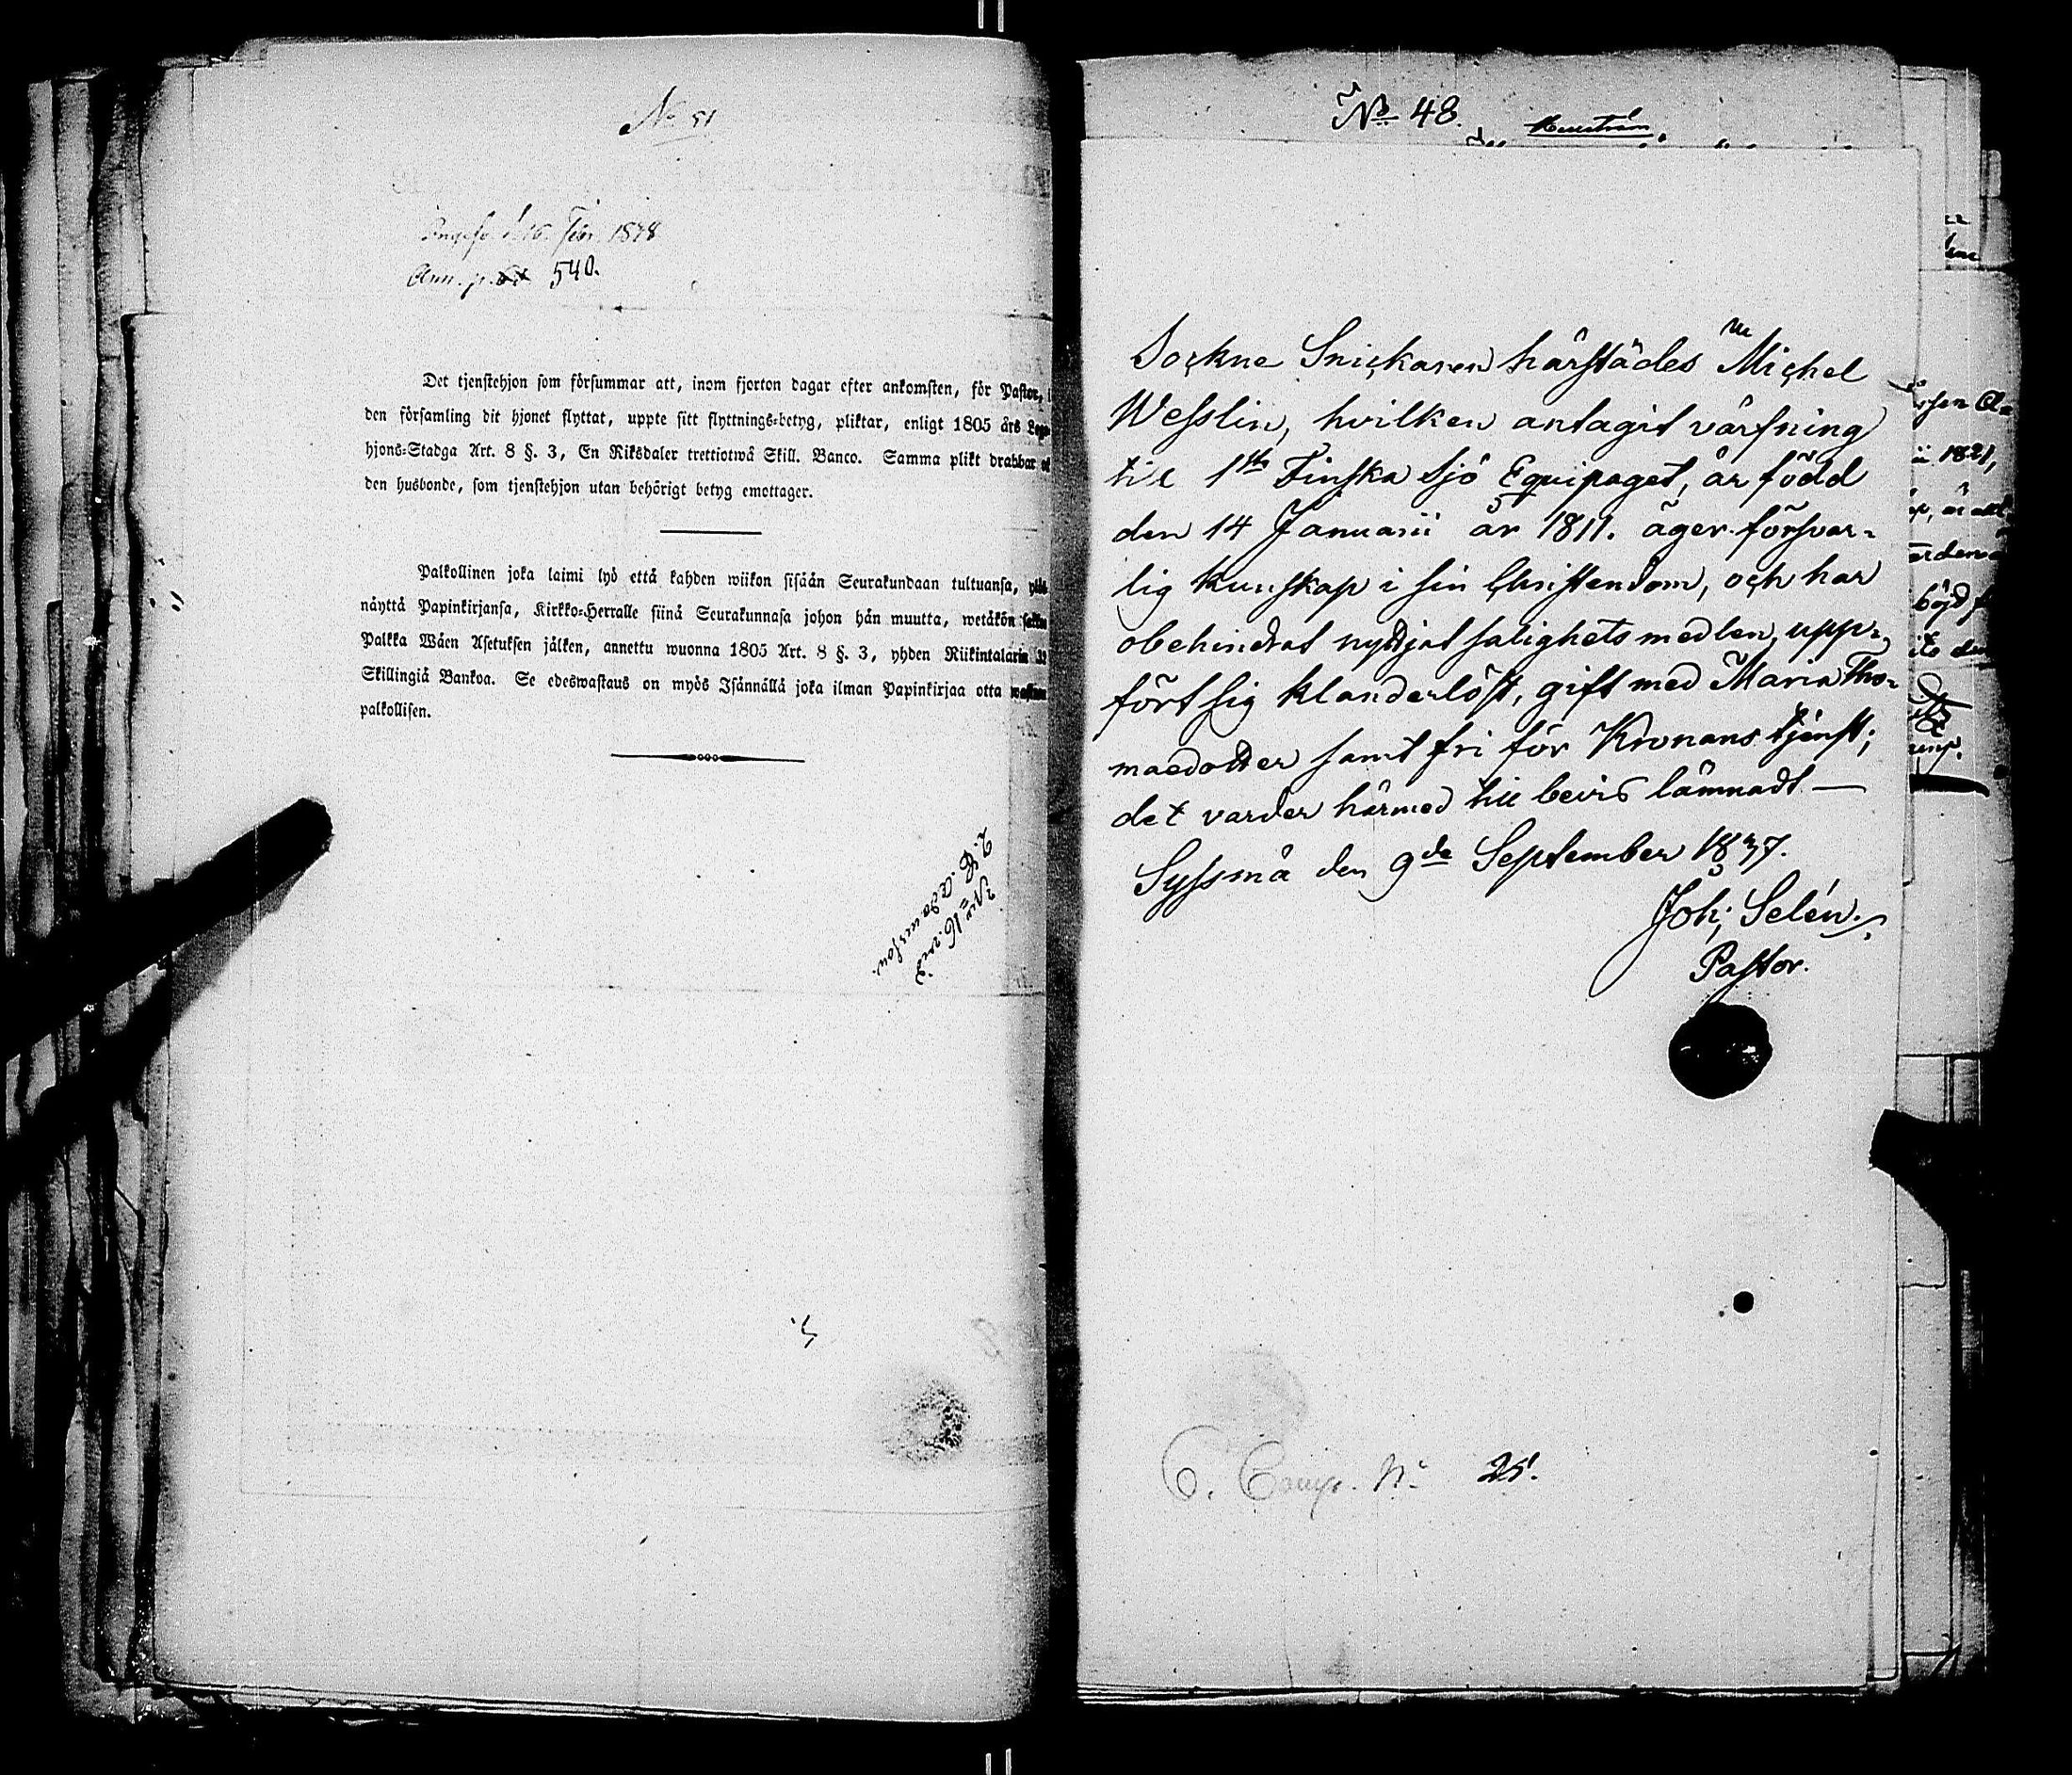 No 51
d. 16. Febr. 1848
Ann. p. 540.
Det tjenstehjon som försummar att, inom fjorton dagar efter ankomsten, för Pastor, i
den församling dit hjonet flyttat, uppte sitt flyttnings-betyg, pliktar, enligt 1805 års Lego
hjons-Stadga Art. 8 §. 3, En Riksdaler trettiotwå Skill. Banco. Samma plikt drabbar
den husbonde, som tjenstehjon utan behörigt betyg emottager.
Palkollinen joka laimi lyö että kahden wiikon sisään Seurakundaan tultuansa,
näyttä Papinkirjansa, Kirkko-Herralle siinä Seurakunnasa johon hän muutta, wetäkön sakko
Palkka Wäen Asetuksen jälken, annettu wuonna 1805 Art. 8 §. 3, yhden Riikintalarin 32
Skillingiä Bankoa. Se edeswastaus on myös Isännällä joka ilman Papinkirjaa otta
palkollisen.
No 48.
Sockne Snickaren härstädes Michel
Wesslin, hvilken antagit värfning
til 1sta Finska Sjö Equipaget, är född
den 14 Januarii år 1811. äger försvar-
lig kunskap i sin Christendom, och har
obehindrat nyttjat salighets medlen, upp-
fört sig klanderlöst, gift med Maria Tho-
maedotter samt fri för Kronans tjenst;
det varder härmed till bevis lämnadt —
Syssmä den 9de September 1837.
Joh; Selén.
Pastor.
6. Comp. No 25.
1821,